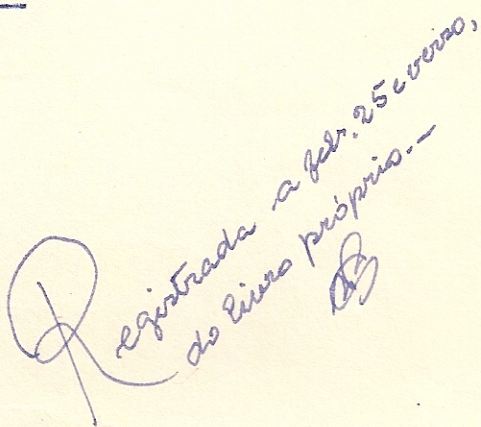 Registrada a fls. 25 e verso,
do livro próprio.-